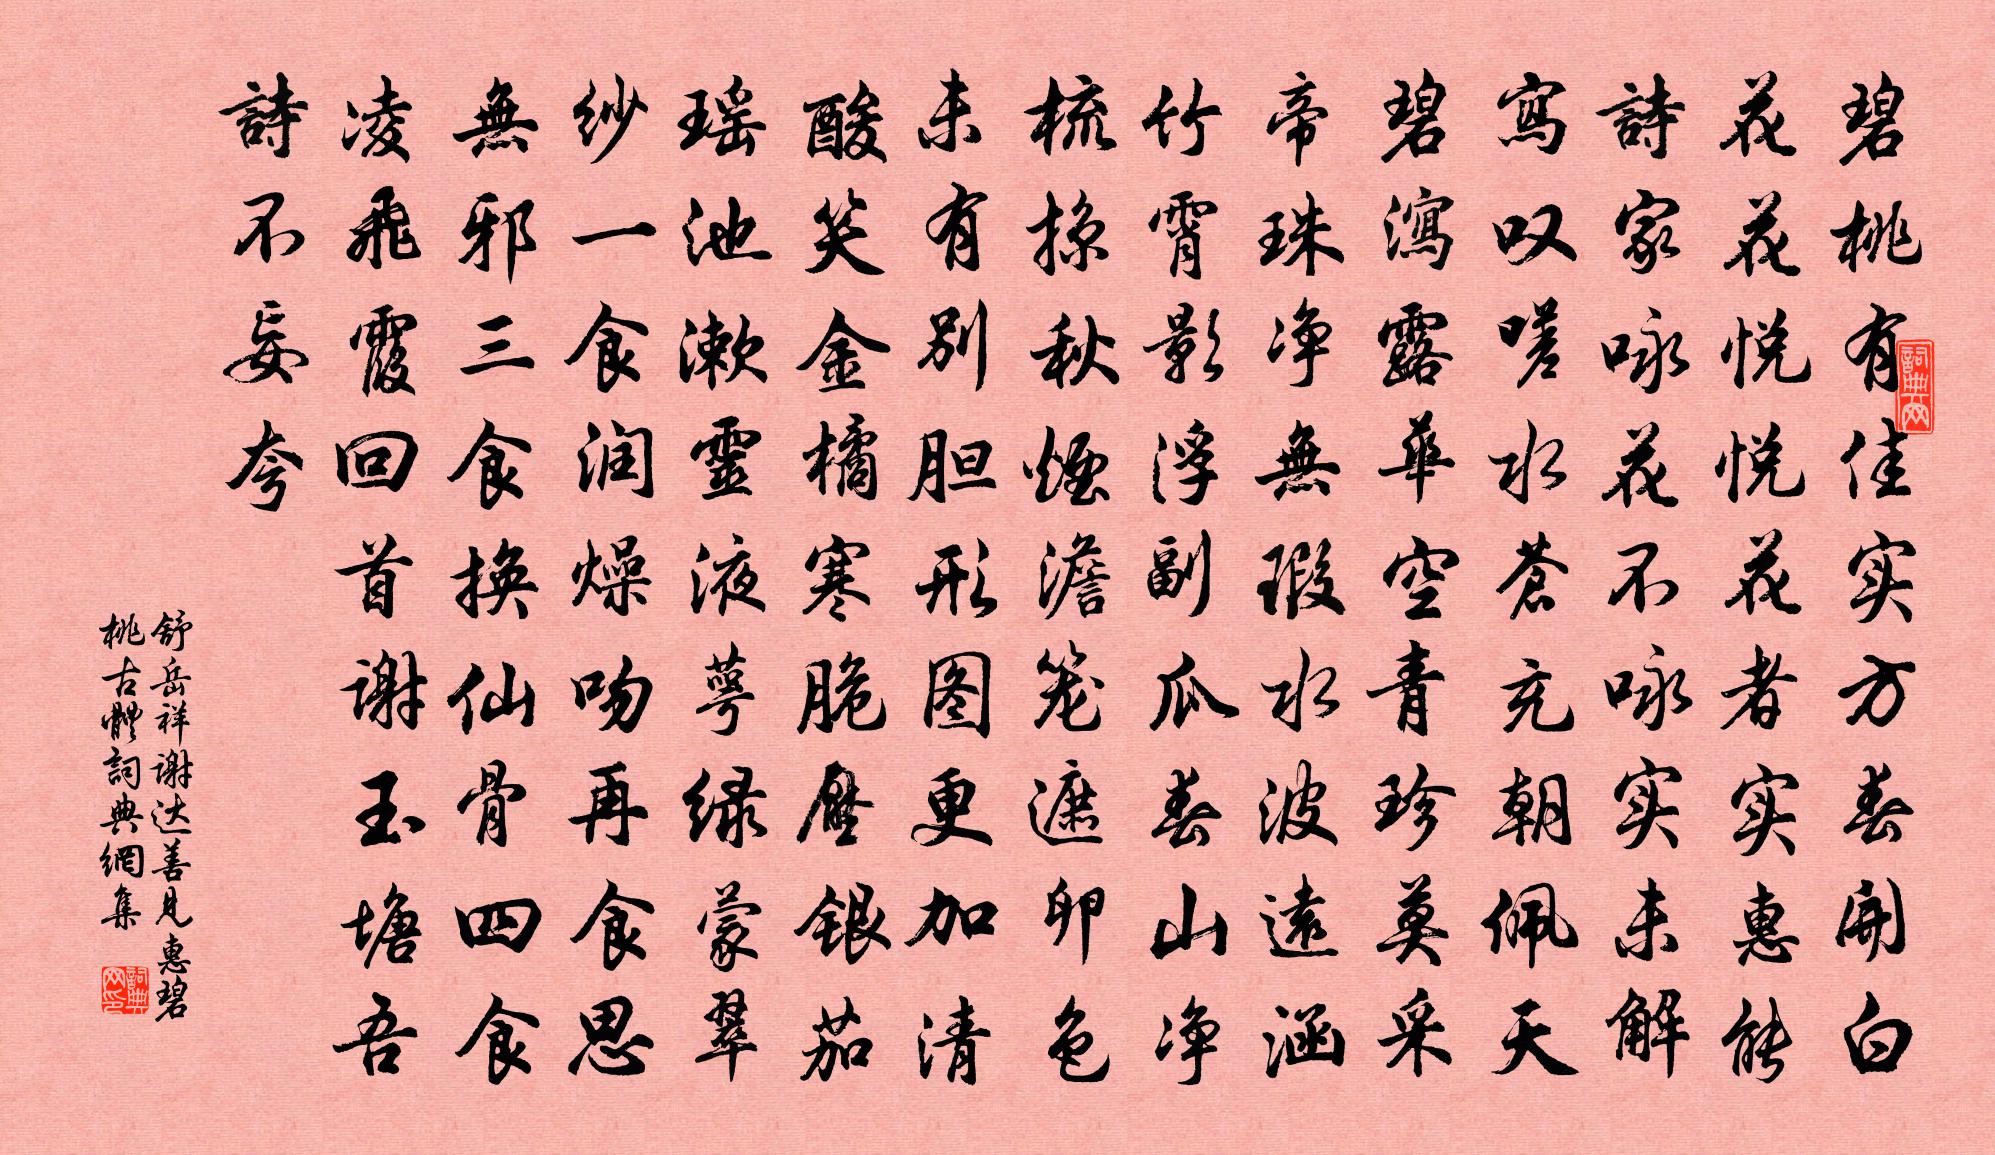 碧桃有佳实方春開白
花花悦悦花者实惠能
詩家咏花不咏实未解
寫叹嗟水蒼充朝佩天
碧瀉露華空青珍莫采
帝珠净無瑕水波遠涵
竹霄影浮副瓜春山净
梳掠秋煙澹笼遮卵色
未有别胆形图更加清
酸笑金橘寒脆壓银茄
瑶池漱靈液萼绿蒙翠
纱一食润燥吻再食思
無邪三食换仙骨四食
凌飛霞回首谢玉塘吾
詩不妄夸
舒岳祥谢达善见惠碧
桃古體詞典網集
詞典网
詞典网印